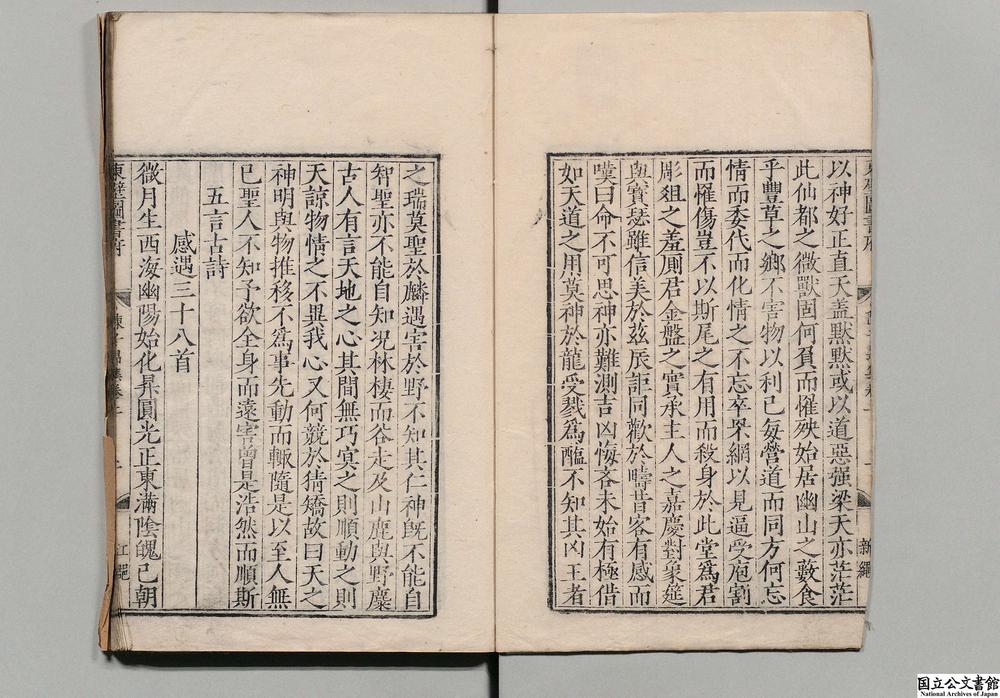 以神好正直天盖黙黙或以道惡强梁天亦茫茫
此仙都之微獸固何負而罹殃始居幽山之藪食
乎豐草之鄉不害物以利己每營道而同方何忘
情而委代而化情之不忘卒罘網以見逼受庖割
而罹傷豈不以斯尾之有用而殺身於此堂爲君
雕俎之羞厠君金盤之實承主人之嘉慶對衆筵
與寶瑟雖信美於兹辰詎同歡於疇昔客有感而
嘆曰命不可思神亦難測吉凶悔吝未始有極借
如天道之用莫神於龍受戮爲醢不知其凶王者
新繩
之瑞莫聖於麟遇害於野不知其仁神旣不能自
智聖亦不能自知况林棲而谷走及山鹿與野麋
古人有言天地之心其間無巧冥之則順動之則
天諒物情之不異我心又何競於猜矯故曰天之
神明與物推移不爲事先動而輙隨是以至人無
已聖人不知予欲全身而遠害曽是浩然而順斯
五言古詩
感遇三十八首
微月生西海幽陽始化昇圓光正東滿陰魄已朝
東壁圖書府
江繩
国立公文書館
National Archives of Japan